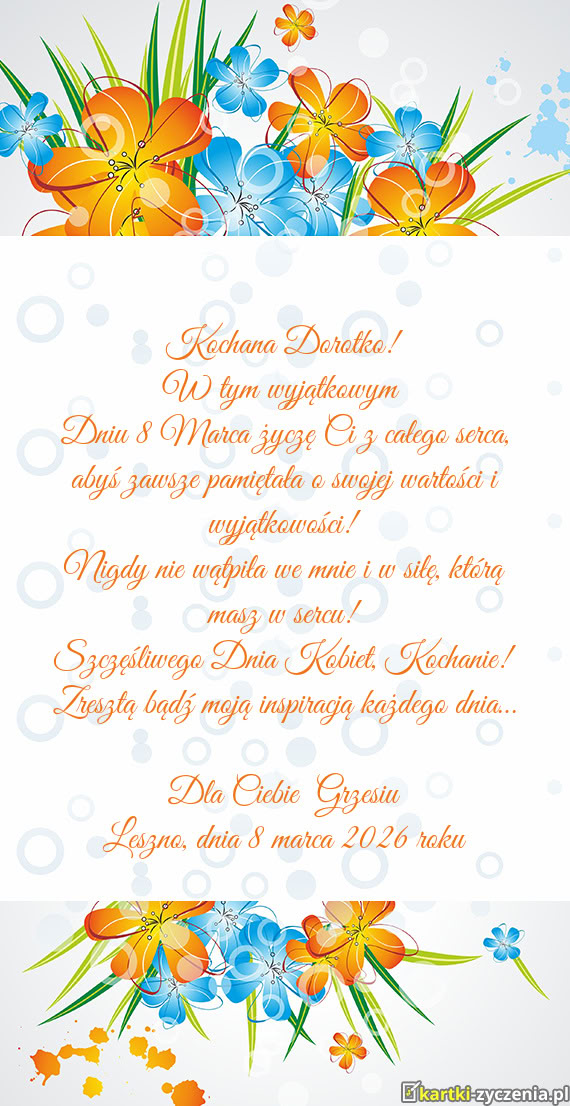 Kochana Dorotko!
W tym wyjątkowym
Dniu 8 Marca życzę Ci z całego serca,
abyś zawsze pamiętała o swojej wartości i
wyjątkowości!
Nigdy nie wątpiła we mnie i w siłę, którą
masz w sercu!
Szczęśliwego Dnia Kobiet, Kochanie!
Zresztą bądź moją inspiracją każdego dnia...
Dla Ciebie Grzesiu
Leszno, dnia 8 marca 2026 roku
kartki-zyczenia.pl